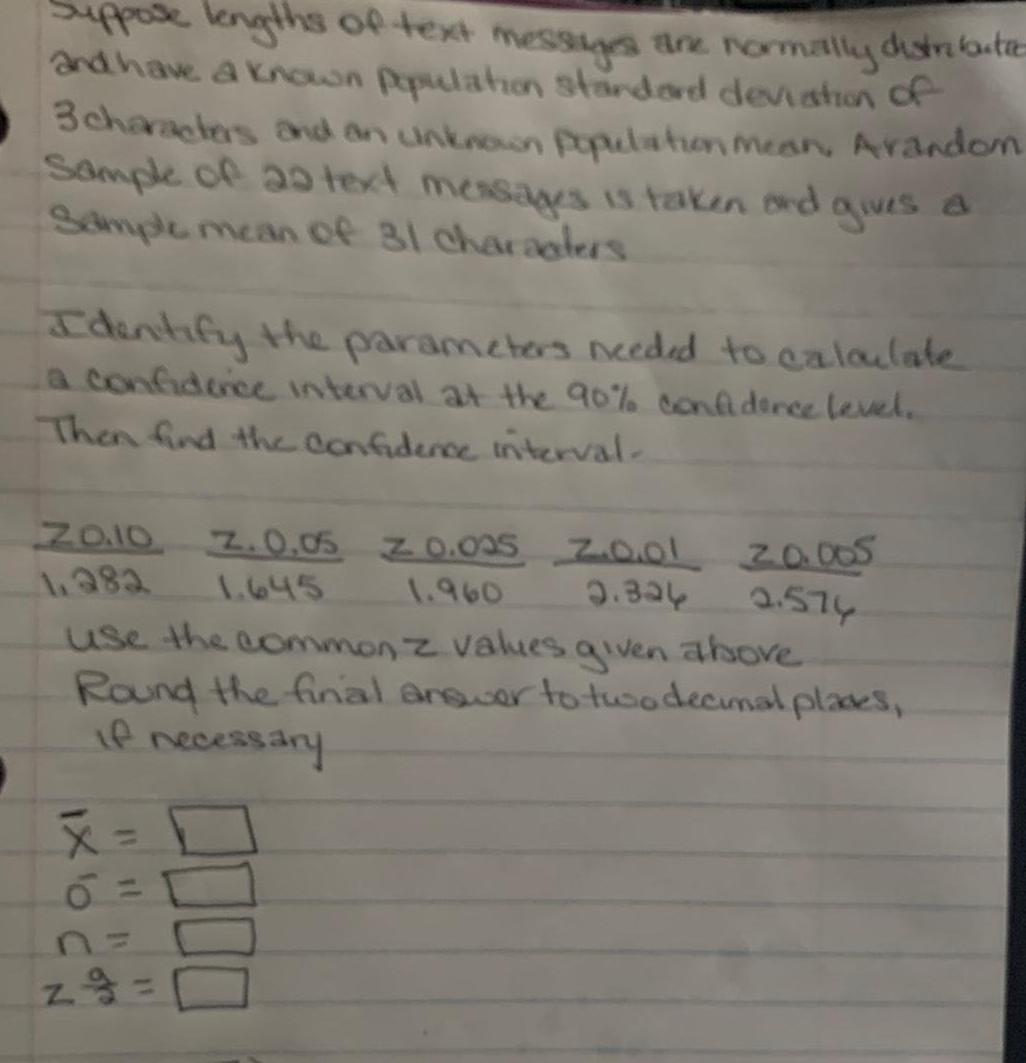 Suppose lengths of text messages are normally distribute
and have a known population standard deviation of
3 characters and an unknown population mean. A random
Sample of 22 text messages is taken and gives a
Sample mean of 31 characters
Identify the parameters needed to calculate
a confidence interval at the 90% confidence level.
Then find the confidence interval.
Z0.10 Z.0.05 Z0.025 Z.0.01 Z0.005
1.282 1.645 1.960 2.326 2.576
use the common z values given above
Round the final answer to two decimal places,
if necessary
x̄ =
σ =
n =
z α/2 =